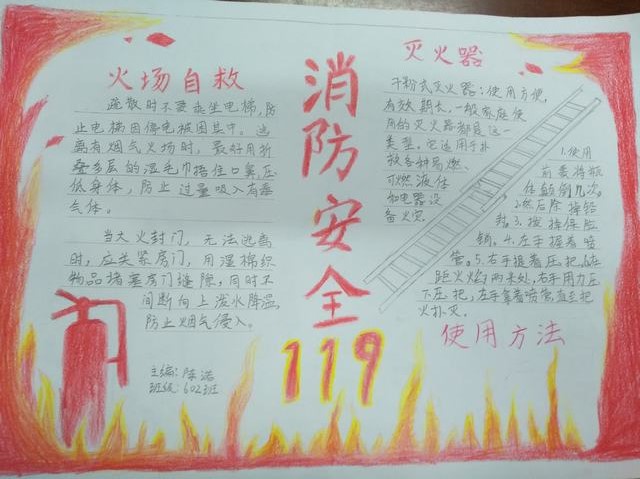 火场自救
疏散时不要乘坐电梯,防
止电梯因停电被困其中。逃
离有烟气火场时,最好用折
叠多层的湿毛巾捂住口鼻,压
低身体,防止过量吸入有毒
气体。
当大火封门,无法逃离
时,应关紧房门,用湿棉织
物品堵塞房门缝隙,同时不
间断向上泼水降温,
防止烟气侵入。
主编:陈诺
班级:602班
消防安全
119
灭火器
干粉式灭火器:使用方便,
有效期长,一般家庭使
用的灭火器都是这一
类型。它适用于扑
救各种易燃、
可燃液体
和电器设
备火灾。
1.使用
前要将瓶
体颠倒几次。
2.然后除掉铅
封。3.拔掉保险
销。4.左手握着喷
管。5.右手提着压把,在
距火焰两米处,右手用力压
下压把,左手拿着喷管,直至把
火扑灭。
使用方法